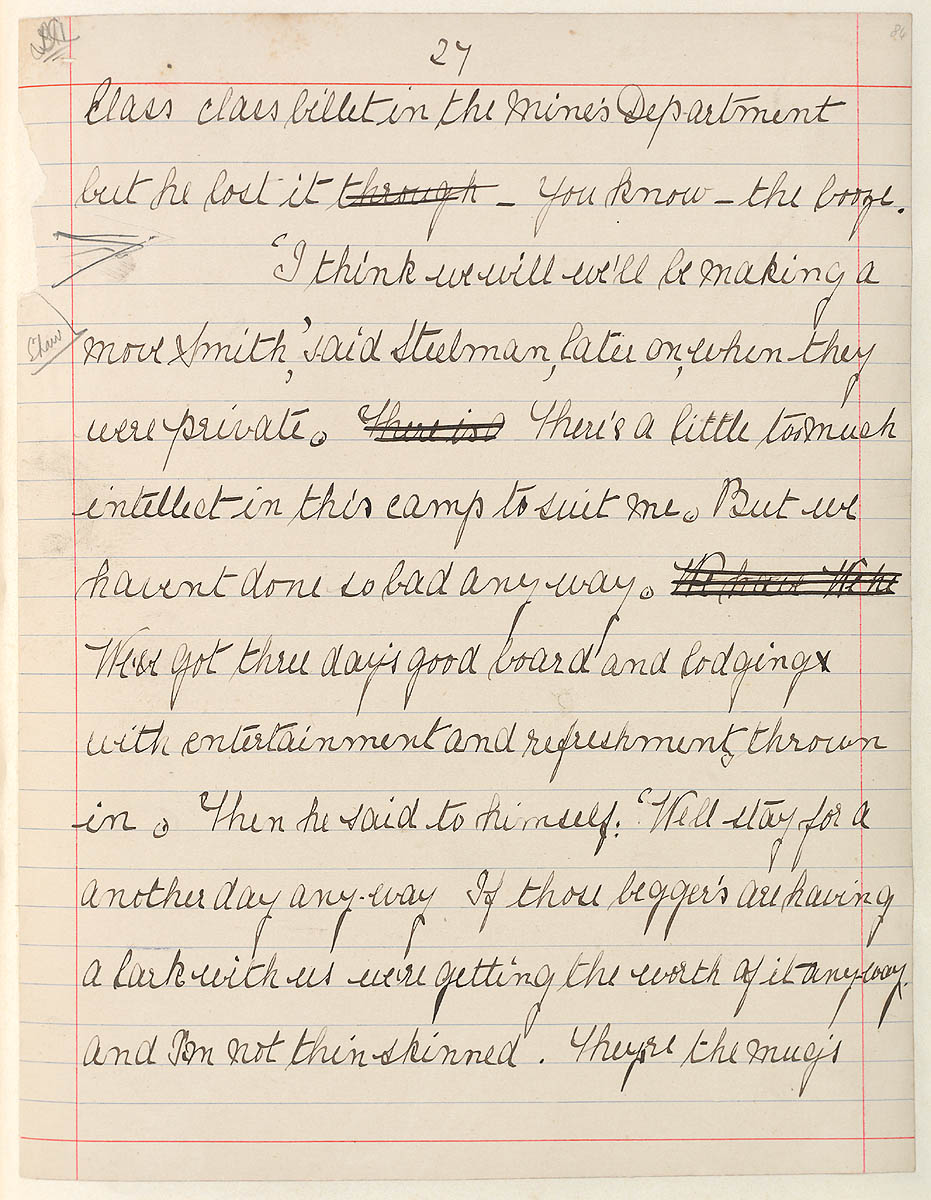 27
86
Class class billet in the Mine's Department
but he lost it through – You know – the booze.
'I think we will we'll be making a
move Smith,' said Steelman, later on, when they
were private. There is a There's a little too much
intellect in this camp to suit me. But we
havent done so bad any way. We have We he
We've got three day's good board and lodging
with entertainment and refreshment, thrown
in. Then he said to himself. 'We'll stay for a
another day any-way If those begger's are having
a lark with us we're getting the worth of it any-way.
and I'm not thin-skinned. They're the mug's